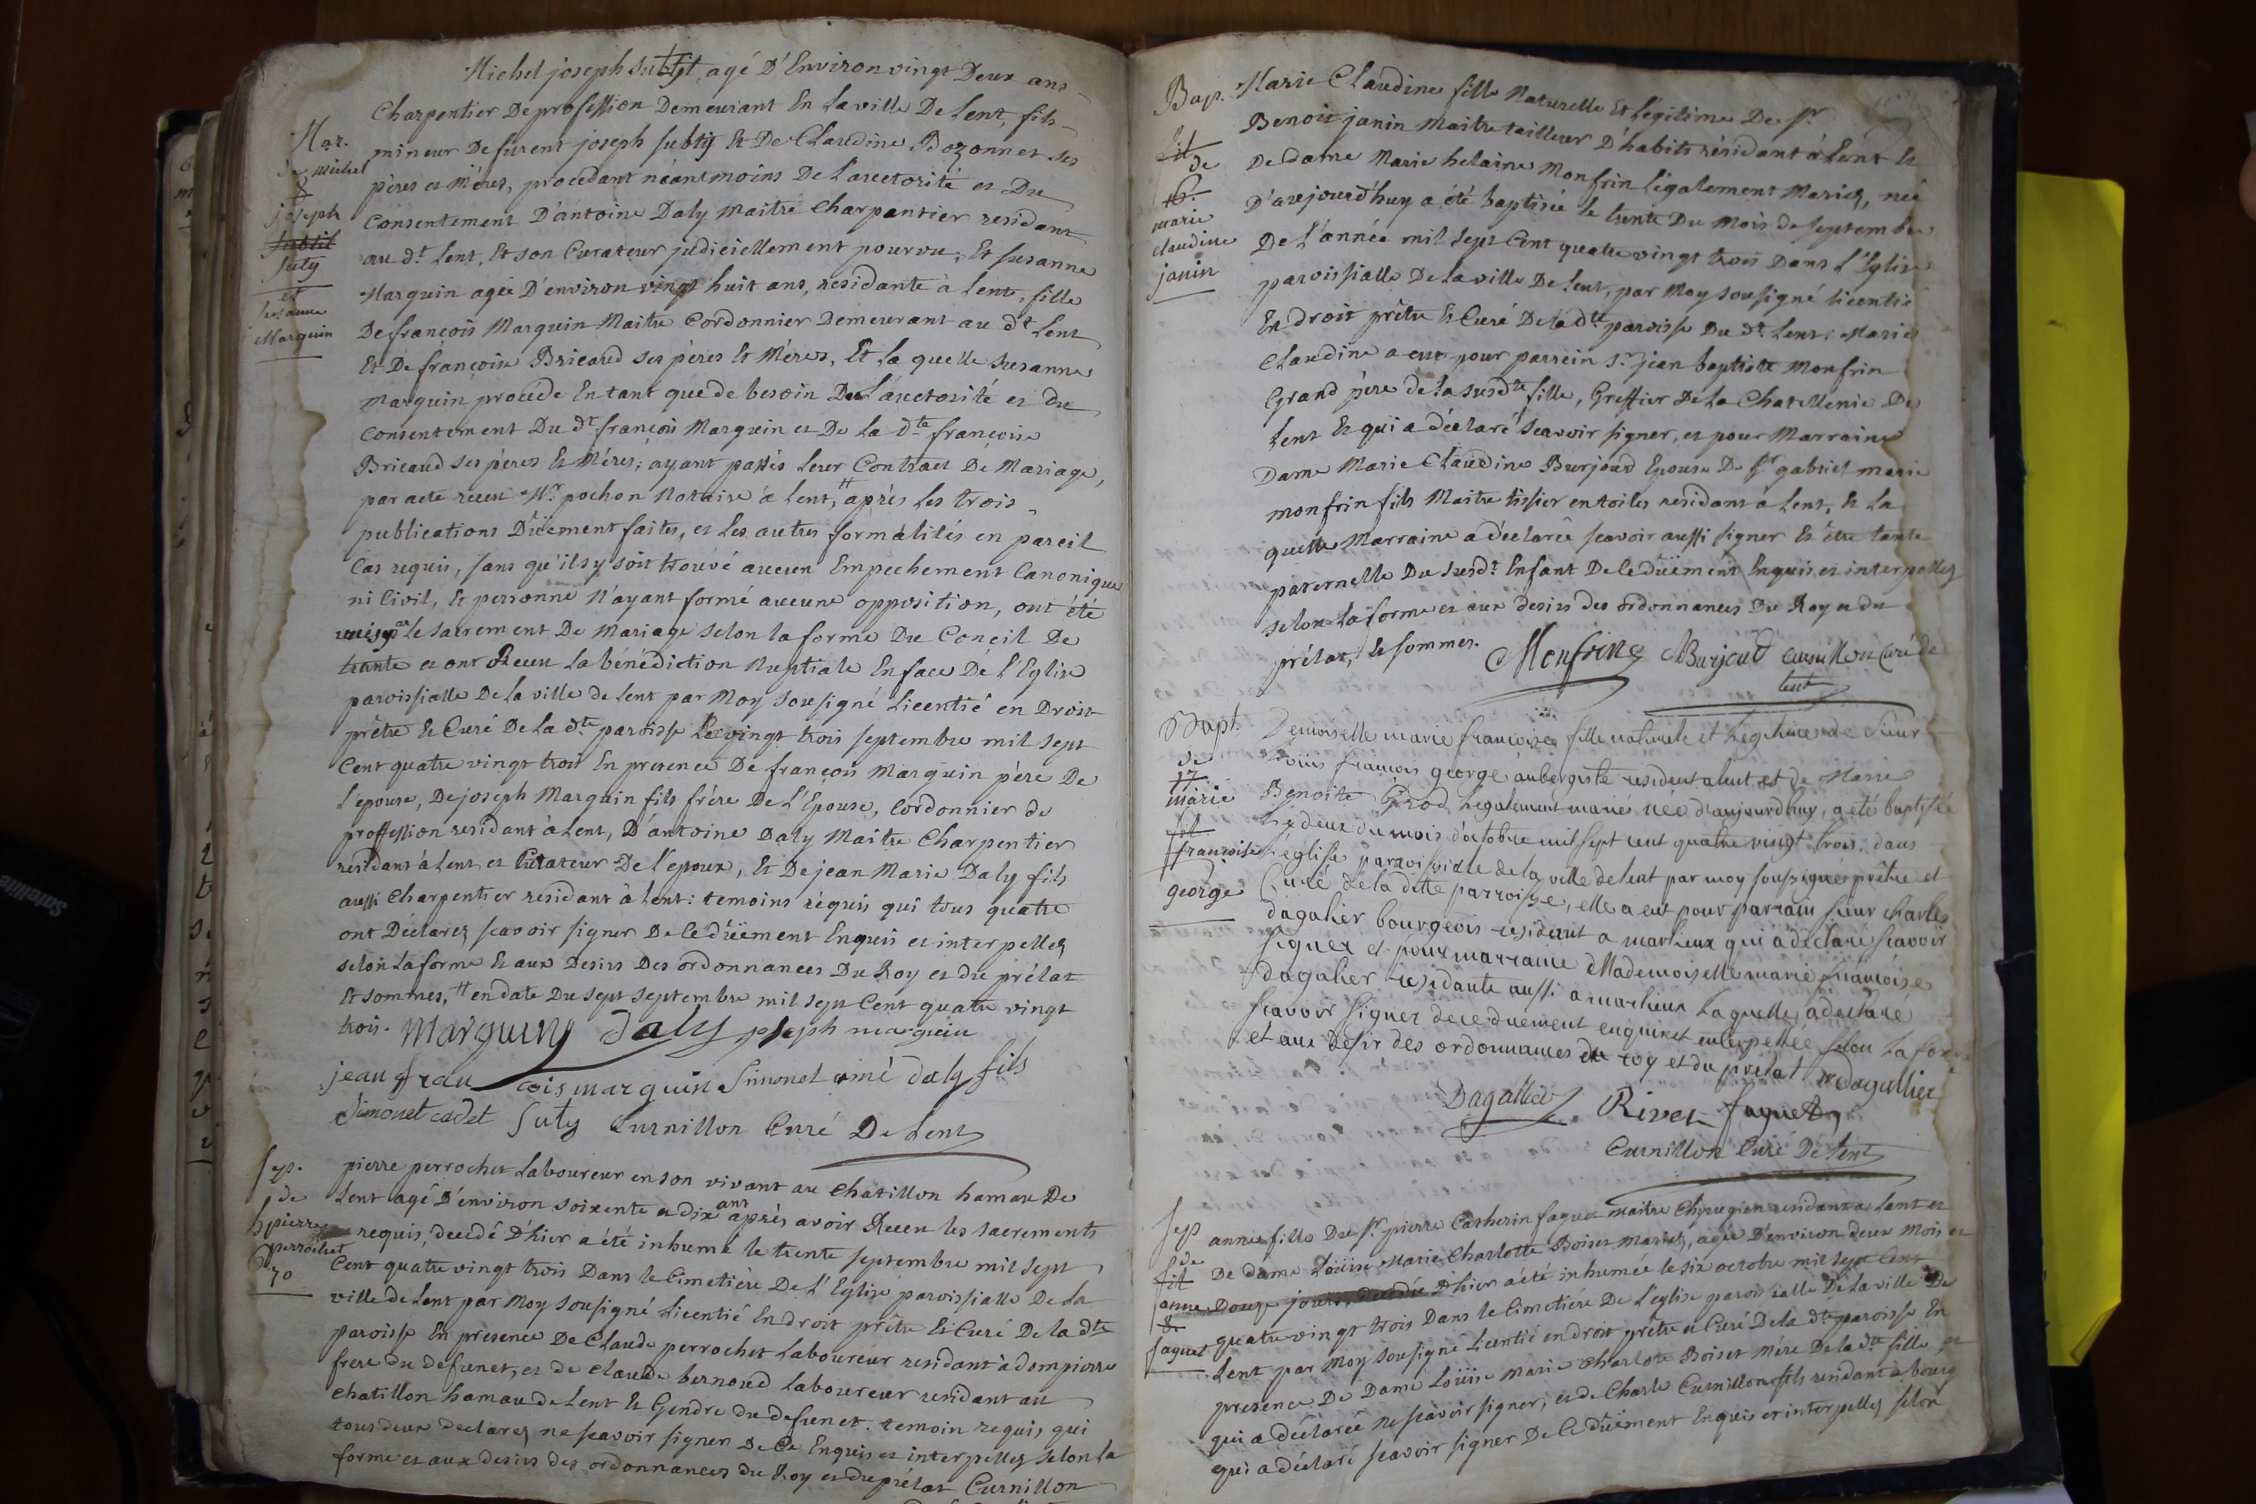 Michel joseph Subtyl, agé D'Environ vingt Deux ans
Charpentier De profession Demeurant En La ville De Lent, fils
Mar.
de michel
&
joseph
Subtil
Suty
et
Susanne
Marguin
mineur De furent joseph Subty Et De Claudine Bozonnet ses
pères et Mères, procédant néantmoins De L'auctorité et Du
Consentement D'antoine Daly Maitre Charpentier residant
au dt Lent, Et son Curateur judiciellement pourvu, Et Susanne
Marguin agée D'environ vingt huit ans, residante à Lent, fille
De françois Marguin Maitre Cordonnier Demeurant au dt Lent
Et De françoise Bricaud ses pères Et Mères, Et La quelle Susanne
Marguin procéde En tant que de besoin De L'auctorité et du
Consentement Du dt françois Marguin et De La dte françoise
Bricaud ses pères Et Mères; ayant passés leur Contract De Mariage,
par acte reçeu Mr pochon Notaire à Lent, # après Les trois
publications Düement faites, et Les autres formalités en pareil
Cas requis, sans qu'il s'y soit trouvé aucun Empechement Canonique
ni Civil, Et personne N'ayant formé aucune opposition, ont été
unis par le sacrement De Mariage selon la forme Du Concil De
trante et ont Reçeu La bénédiction Nuptiale En face De L'Eglise
paroissialle De La ville de Lent par Moy sousigné Licentié en Droit
prêtre Et Curé De La dte paroisse Le vingt trois septembre mil sept
Cent quatre vingt trois En presence De françois Marguin père De
L'epouse, De joseph Marguin fils frère De L'Epouse, Cordonnier de
proffession residant à Lent, D'antoine Daly Maitre Charpentier
residant à Lent et Curateur De l'epoux, Et De jean Marie Daly fils
aussi Charpentier residant à Lent: temoins réquis qui tous quatre
ont Déclarez scavoir signer De Ce düement Enquis et interpellez
selon La forme Et aux Desirs Des ordonnances Du Roy et du prélat
Et sommes, # en date Du sept septembre mil sept Cent quatre vingt
trois. Marguin Daly joseph marguin
jean françois marguin Simonet ainé daly fils
Simonet cadet Suty Curnillon Curé De Lent
Sep.
de
pierre
perrochet
70
pierre perrochet Laboureur en son vivant au Chatillon hamau De
Lent agé D'environ soixente et dix ans après avoir Reçeu les sacrements
requis, decedé D'hier a été inhumé le trente septembre mil sept
Cent quatre vingt trois Dans le Cimetière De L'Eglise paroissialle De La
ville de Lent par Moy sousigné Licentié En droit prêtre Et Curé De la dte
paroisse En presence De Claude perrochet Laboureur residant à dompierre
frere du defunct, et de claude bernoud laboureur residant au
chatillon hamau de Lent Et Gendre du defunct. temoin requis qui
tous deux declarez ne scavoir signer De Ce Enquis et interpellez selon La
forme et aux desirs des ordonnances du Roy et du prélat Curnillon
Bap.
fil
de
Sr
marie
claudine
janin
Marie Claudine fille Naturelle Et Légitime De Sr
Benoit janin Maitre tailleur D'habits résidant à Lent Et
De dame Marie helaine Monfrin Légalement Mariez, née
D'aujourd'huy a été baptisée le trente Du Mois de septembre
De L'année mil sept Cent quatre vingt trois Dans L'Eglise
paroissialle De La ville De Lent, par Moy sousigné licentié
En droit prêtre Et Curé De la dte paroisse Du dt Lent: Marie
Claudine a eut pour parrein Sr jean baptiste Monfrin
Grand père de la susdte fille, Greffier De La Chatellenie De
Lent Et qui a déclaré scavoir signer, et pour Marraine
Dame Marie Claudine Burjoud Epouse De Sr gabriel marie
monfrin fils Maitre tissier en toiles residant a Lent, Et La
quelle Marraine a déclarée scavoir aussi signer Et être tante
paternelle Du susdt Enfant De Ce düement Enquis et interpellez
selon La forme et aux desirs des ordonnances Du Roy et du
prélat, Et sommes. Monfrin Burjoud curnillon Curé de
Lent
Bapt.
de
17
marie
fil
francoise
george
Demoiselle marie francoise fille naturele et Legitime de sieur
Louis francois george aubergiste resident a lent et de Marie
Benoite Grod, Legalement mariés née d'aujourdhuy, a eté baptisée
Le deux du mois d'octobre mil sept cent quatre vingt trois. dans
L'eglise parroissiale de la ville de lent par moy soussigné prêtre et
Curé de la dite parroisse, elle a eut pour parrain sieur charles
dagalier bourgeois resident a marlieux qui a declaré scavoir
signer et pour marraine Mademoiselle marie francoise
dagalier residante aussi a marlieux Laquelle a declaré
scavoir signer de ce duement enquis et interpellée selon la forme
et aux desir des ordonnances du roy et du prelat Dagallier
Dagallier Rivet Faguet
Curnillon Curé De Lent
Sep
de
fil
anne
&
faguet
anne fille Du Sr pierre Catherin faguet maitre Chyrugien residant a Lent et
De dame Loüise Marie Charlotte Boiset Mariez, agée D'environ deux Mois et
Douze jours, decedée D'hier a été inhumée le six octobre mil sept Cent
quatre vingt trois Dans le Cimetière De L'eglise paroissialle De La ville De
Lent par Moy sousigné Licentié en droit prêtre et Curé De La dte paroisse En
presence De Dame Loüise Marie Charlote Boiset Mére De la dte fille, et
qui a déclarée ne scavoir signer, et de Charle Curnillon fils residant à bourg
qui a déclaré scavoir signer De Ce düement Enquis et interpellez selon